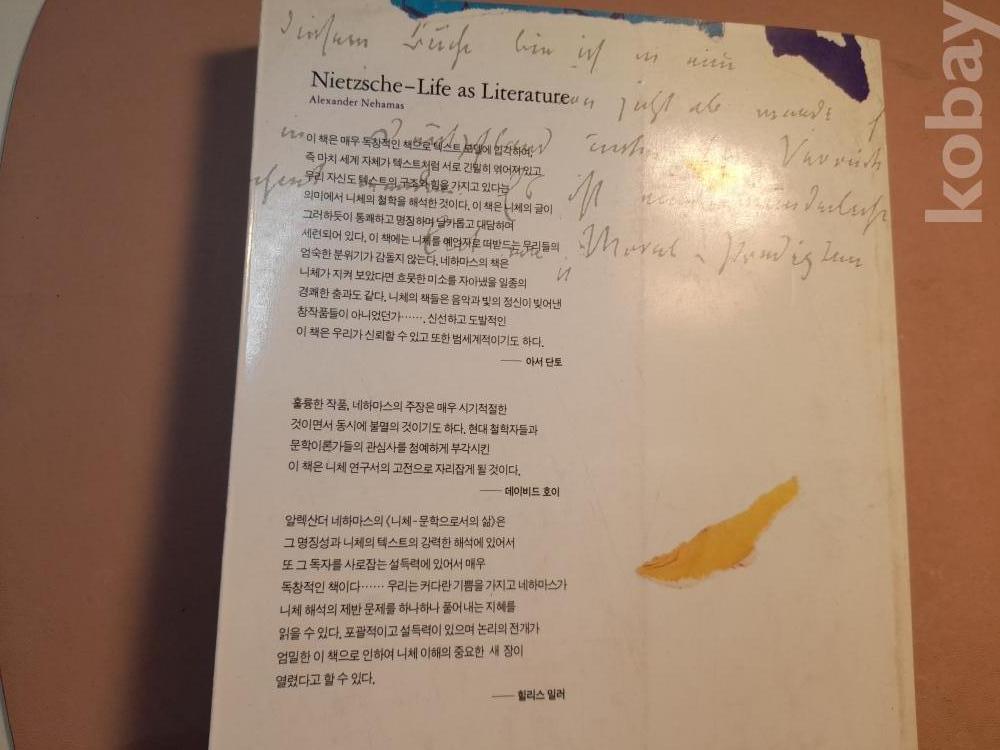 Nietzsche–Life as Literature
Alexander Nehamas
이 책은 매우 독창적인 책으로 텍스트 모델에 입각하여,
즉 마치 세계 자체가 텍스트처럼 서로 긴밀히 엮어져 있고
우리 자신도 텍스트의 구조와 힘을 가지고 있다는
의미에서 니체의 철학을 해석한 것이다. 이 책은 니체의 글이
그러하듯이 통쾌하고 명징하며 날카롭고 대담하며
세련되어 있다. 이 책에는 니체를 예언자로 떠받드는 무리들의
엄숙한 분위기가 감돌지 않는다. 네하마스의 책은
니체가 지켜 보았다면 흐뭇한 미소를 자아냈을 일종의
경쾌한 춤과도 같다. 니체의 책들은 음악과 빛의 정신이 빚어낸
창작품들이 아니었던가……. 신선하고 도발적인
이 책은 우리가 신뢰할 수 있고 또한 범세계적이기도 하다.
── 아서 단토
훌륭한 작품, 네하마스의 주장은 매우 시기적절한
것이면서 동시에 불멸의 것이기도 하다. 현대 철학자들과
문학이론가들의 관심사를 첨예하게 부각시킨
이 책은 니체 연구서의 고전으로 자리잡게 될 것이다.
── 데이비드 호이
알렉산더 네하마스의 〈니체-문학으로서의 삶〉은
그 명징성과 니체의 텍스트의 강력한 해석에 있어서
또 그 독자를 사로잡는 설득력에 있어서 매우
독창적인 책이다…… 우리는 커다란 기쁨을 가지고 네하마스가
니체 해석의 제반 문제를 하나하나 풀어내는 지혜를
읽을 수 있다. 포괄적이고 설득력이 있으며 논리의 전개가
엄밀한 이 책으로 인하여 니체 이해의 중요한 새 장이
열렸다고 할 수 있다.
── 힐리스 밀러
kobay